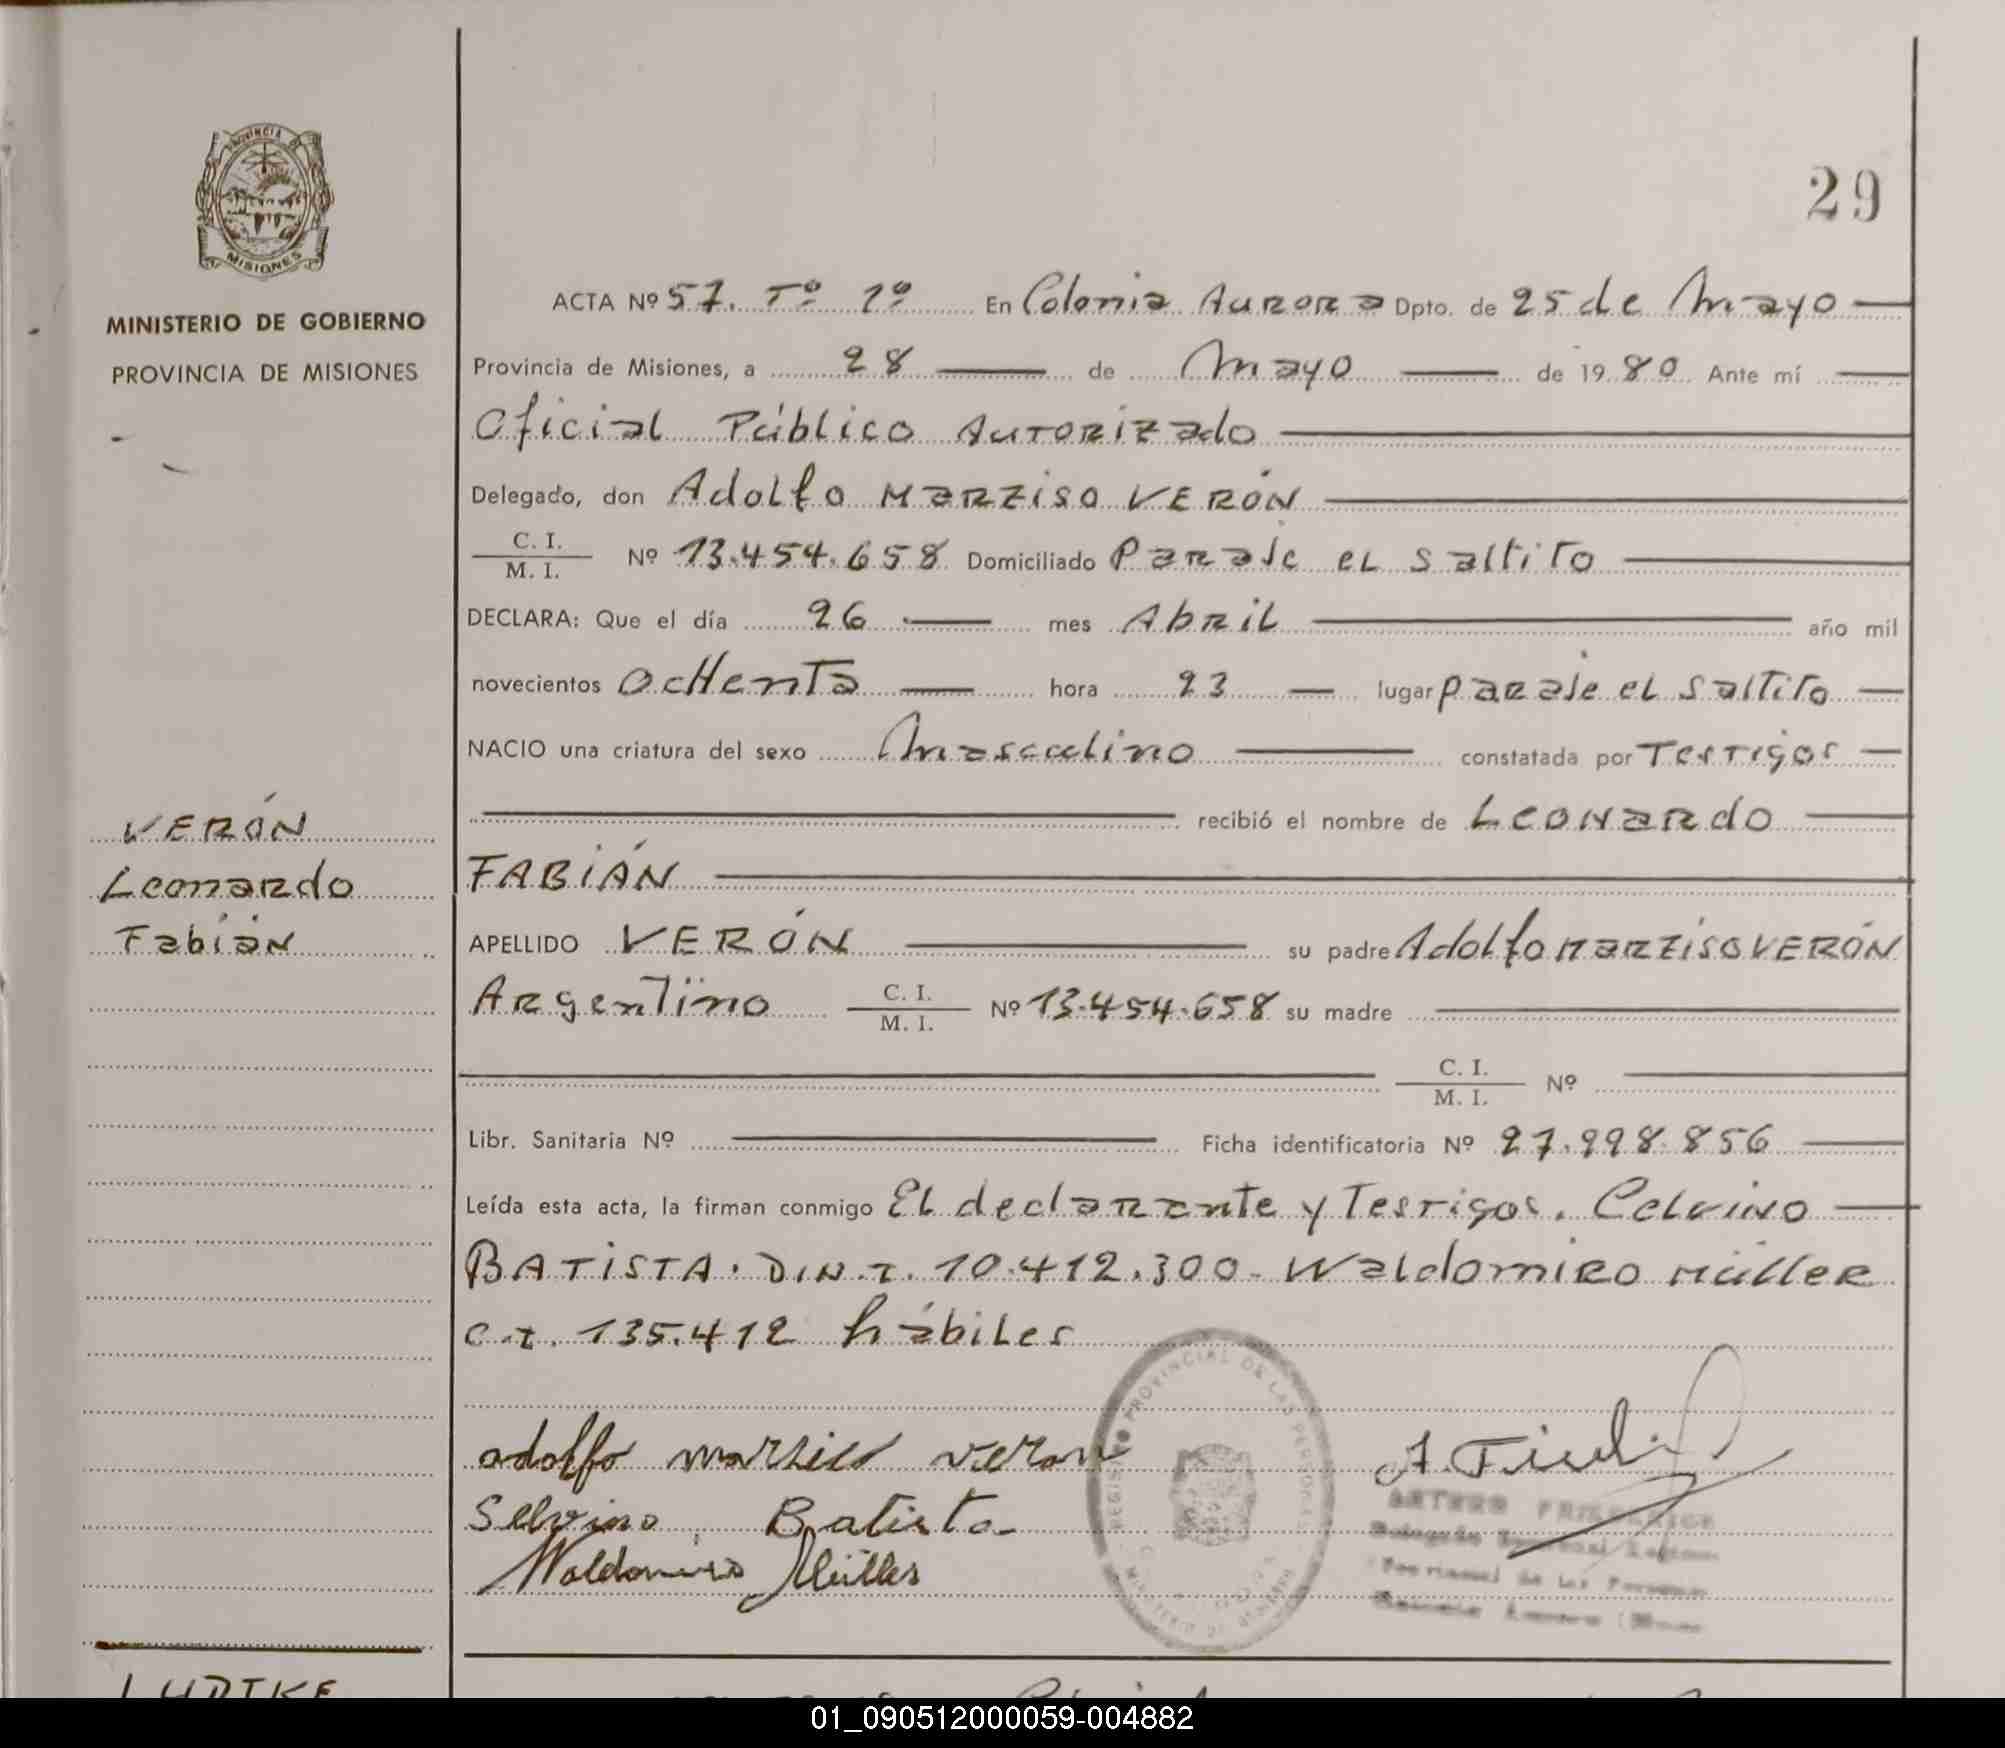 29
PROVINCIA DE
MISIONES
MINISTERIO DE GOBIERNO
PROVINCIA DE MISIONES
VERÓN
Leonardo
Fabián
ACTA Nº 57. Tº 1º En Colonia Aurora Dpto. de 25 de Mayo
Provincia de Misiones, a 28 de Mayo de 1980 Ante mí
Oficial Público Autorizado
Delegado, don Adolfo Marziso VERÓN
C. I.
M. I. Nº 13.454.658 Domiciliado Paraje el Saltito
DECLARA: Que el día 26 mes Abril año mil
novecientos ocHenta hora 23 lugar paraje el Saltito
NACIO una criatura del sexo Masculino constatada por Testigos
recibió el nombre de Leonardo
FABIÁN
APELLIDO VERÓN su padre Adolfo Marziso VERÓN
Argentino C. I.
M. I. Nº 13.454.658 su madre
C. I.
M. I. Nº
Libr. Sanitaria Nº Ficha identificatoria Nº 27.998.856
Leída esta acta, la firman conmigo El declarante y Testigos. Celvino
BATISTA. D.N.I. 10.412.300. Waldomiro Müller
C.I. 135.412 hábiles
adolfo marsiso veron
Selvino Batista
Waldomiro Müller
REGISTRO PROVINCIAL DE LAS PERSONAS
LUDTKE
01_090512000059-004882